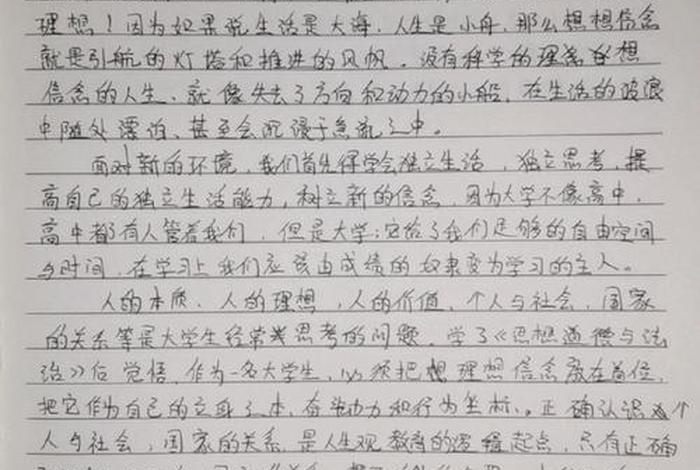 理想！因为如果说生活是大海，人生是小舟，那么想想信念
就是引航的灯塔和推进的风帆。没有科学的理想
信念的人生，就像失去了方向和动力的小船，在生活的波浪
中随处漂泊，甚至会沉没于急流之中。
面对新的环境，我们首先得学会独立生活，独立思考，提
高自己的独立生活能力，树立新的信念，因为大学不像高中，
高中都有人管着我们，但是大学：它给了我们足够的自由空间
与时间，在学习上我们应该由成绩的奴隶变为学习的主人。
人的本质，人的理想，人的价值，个人与社会，国家
的关系等是大学生经常思考的问题，学了《思想道德与法
治》后觉悟，作为一名大学生，必须把想理想信念放在首位，
把它作为自己的立身之本，奋斗动力和行为坐标，。正确认识个
人与社会，国家的关系，是人生观教育的逻辑起点，只有正确